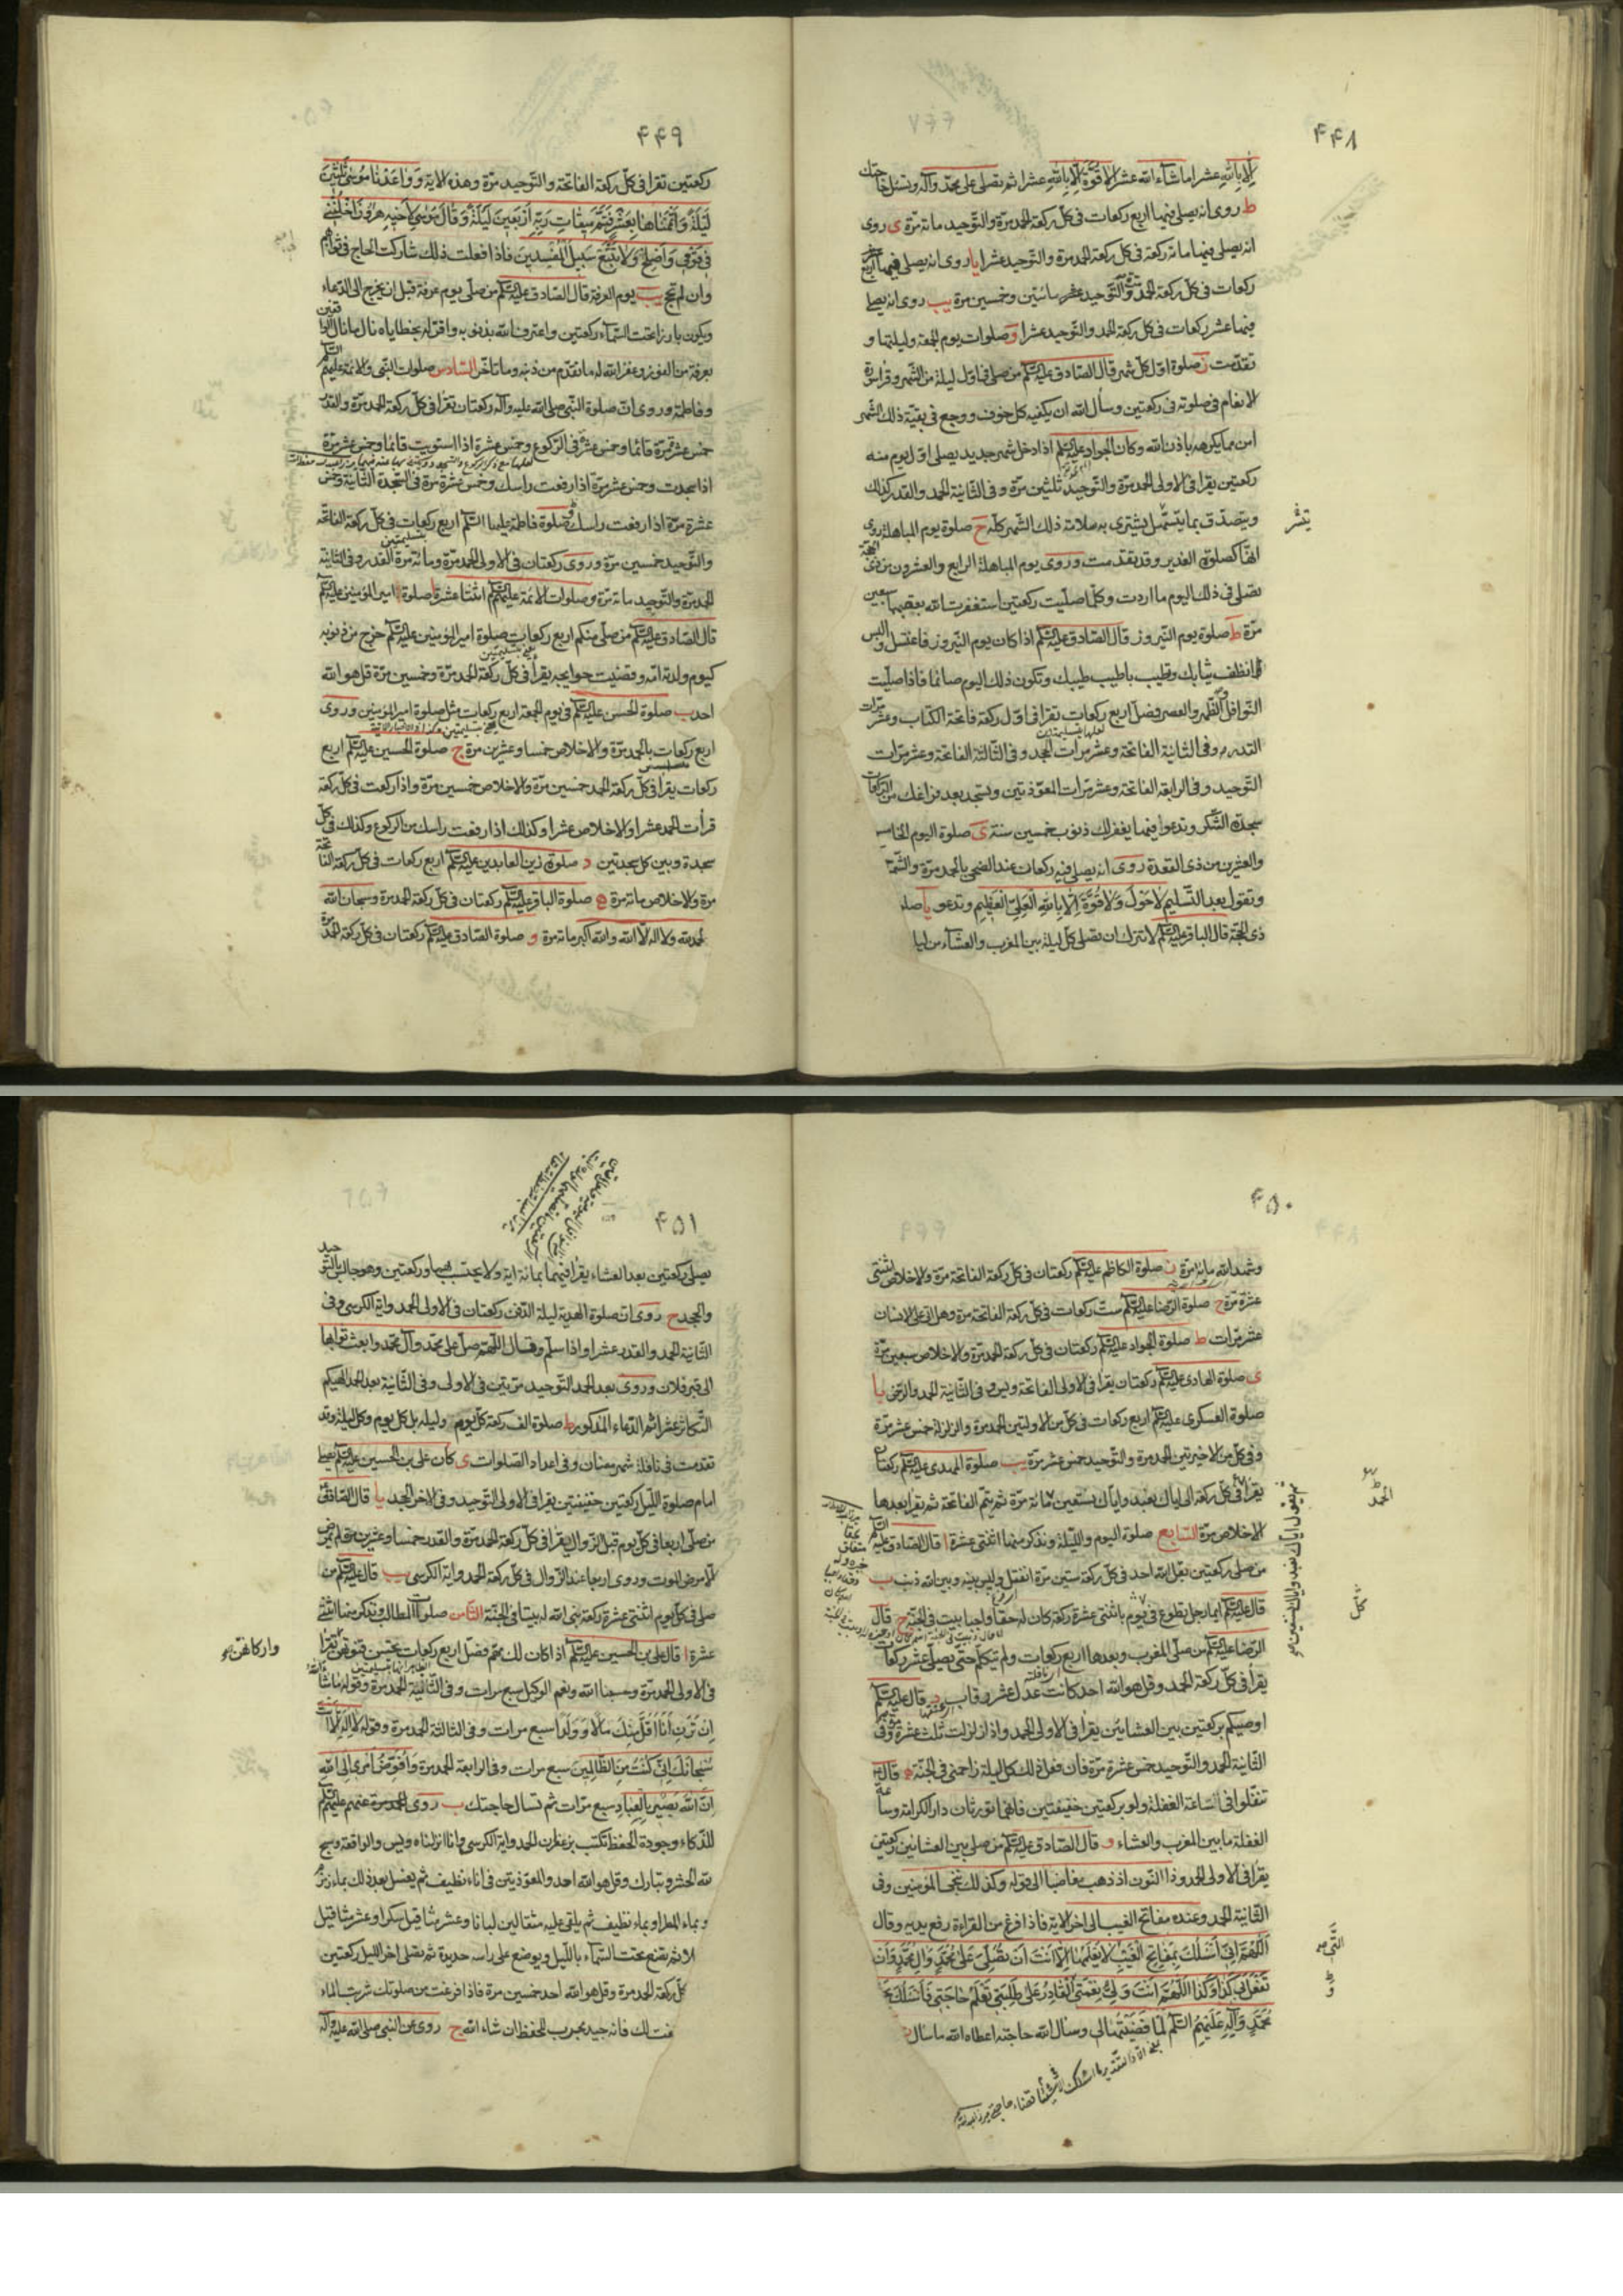 ۴۴۸
الا بالله عشرا ما شاء الله عشرا لا قوة الا بالله عشرا ثم تصلي على محمد وآله وتسئل حاجتك
ط روى انه يصلى فيها اربع ركعات في كل ركعة الحمد مرة والتوحيد مائة مرة ى روى
انه يصلى فيها مائة ركعة في كل ركعة الحمد مرة والتوحيد عشرا يا روى انه يصلى فيها اربع عشر
ركعات في كل ركعة الحمد مرة والتوحيد مائتين وخمسين مرة يب روى انه يصلى
فيها عشر ركعات في كل ركعة الحمد والتوحيد عشرا و صلوات يوم الجمعة وليلتها و
تقدمت ز صلوة اول كل شهر قال الصادق عليه السلام من صلى في اول ليلة من الشهر وقرا سورة
الانعام في صلوته في ركعتين وسأل الله ان يكفيه كل خوف ووجع في بقية ذلك الشهر
امن مما يكرهه باذن الله وكان الجواد عليه السلام اذا دخل شهر جديد يصلى اول يوم منه
ركعتين يقرا في الاولى الحمد مرة والتوحيد ثلثين مرة وفي الثانية الحمد والقدر كذلك
ويتصدق بما يتسهل يشترى به سلامة ذلك الشهر كله ح صلوة يوم المباهلة روى
انها كصلوة الغدير وقد تقدمت وروى يوم المباهلة الرابع والعشرون من ذى الحجة
تصلى في ذلك اليوم ما اردت وكلما صليت ركعتين استغفرت الله بعقبها سبعين
مرة ط صلوة يوم النيروز قال الصادق عليه السلام اذا كان يوم النيروز فاغتسل والبس
انظف ثيابك وتطيب باطيب طيبك وتكون ذلك اليوم صائما فاذا صليت
النوافل والظهر والعصر فصل اربع ركعات تقرا في اول ركعة فاتحة الكتاب وعشر مرات
القدر وفي الثانية الفاتحة وعشر مرات الجحد وفي الثالثة الفاتحة وعشر مرات
التوحيد وفي الرابعة الفاتحة وعشر مرات المعوذتين وتسجد بعد فراغك من الركعات
سجدة الشكر وتدعوا فيها يغفر لك ذنوب خمسين سنة ى صلوة اليوم الخامس
والعشرين من ذى القعدة روى انه يصلى فيه ركعتان عند الضحى بالحمد مرة والشمس
وتقول بعد التسليم لا حول ولا قوة الا بالله العلى العظيم وتدعو يا
ذى الحجة قال الباقر عليه السلام لا تتركن ان تصلى كل ليلة بين المغرب والعشاء من
۴۴۹
ركعتين تقرا في كل ركعة الفاتحة والتوحيد مرة وهذه الاية وواعدنا موسى ثلثين
ليلة واتممناها بعشر فتم ميقات ربه اربعين ليلة وقال موسى لاخيه هرون اخلفني
في قومي واصلح ولا تتبع سبيل المفسدين فاذا فعلت ذلك شاركت الحاج في ثوابهم
وان لم تحج يب يوم العرفة قال الصادق عليه السلام من صلى يوم عرفة قبل ان يخرج الى الدعاء
ويكون بارزا تحت السماء ركعتين واعترف لله بذنوبه واقر له بخطاياه نال ما نال الواقفين
بعرفة من الفوز وغفر الله له ما تقدم من ذنبه وما تاخر السادس صلوات النبى والائمة عليهم السلام
وفاطمة وروى ان صلوة النبي صلى الله عليه وآله ركعتان تقرا في كل ركعة الحمد مرة والقدر
خمس عشرة مرة قائما وخمس عشرة في الركوع وخمس عشرة اذا استويت قائما وخمس عشر مرة
اذا سجدت وخمس عشر مرة اذا رفعت راسك وخمس عشرة مرة في السجدة الثانية وخمس
عشرة مرة اذا رفعت راسك وصلوة فاطمة عليها السلم اربع ركعات في كل ركعة الفاتحة
والتوحيد خمسين مرة وروى ركعتان في الاولى الحمد مرة ومائة مرة القدر وفي الثانية
الحمد مرة والتوحيد مائة مرة وصلوات الائمة عليهم السلام اثنتا عشرة ا صلوة امير المؤمنين عليه السلام
قال الصادق عليه السلام من صلى منكم اربع ركعات صلوة امير المؤمنين عليه السلام خرج من ذنوبه
كيوم ولدته امه وقضيت حوايجه يقرا في كل ركعة الحمد مرة وخمسين مرة قل هو الله
احد ب صلوة الحسن عليه السلام في يوم الجمعة اربع ركعات مثل صلوة امير المؤمنين وروى
اربع ركعات بالحمد مرة والاخلاص خمسا وعشرين مرة ج صلوة الحسين عليه السلام اربع
ركعات يقرا في كل ركعة الحمد خمسين مرة والاخلاص خمسين مرة واذا ركعت في كل ركعة
قرأت الحمد عشرا والاخلاص عشرا وكذلك اذا رفعت راسك من الركوع وكذلك في كل
سجدة وبين كل سجدتين د صلوة زين العابدين عليه السلام اربع ركعات في كل ركعة الفاتحة
مرة والاخلاص مائة مرة ه صلوة الباقر عليه السلام ركعتان في كل ركعة الحمد مرة وسبحان الله
الحمد لله ولا اله الا الله والله اكبر مائة مرة و صلوة الصادق عليه السلام ركعتان في كل ركعة الحمد مرة
۴۵۰
وشهد الله مائة مرة ز صلوة الكاظم عليه السلام ركعتان في كل ركعة الفاتحة مرة والاخلاص اثنتى
عشرة مرة ح صلوة الرضا عليه السلام ست ركعات في كل ركعة الفاتحة مرة وهل اتى على الانسان
عشر مرات ط صلوة الجواد عليه السلام ركعتان في كل ركعة الحمد مرة والاخلاص سبعين مرة
ى صلوة الهادى عليه السلام ركعتان يقرا في الاولى الفاتحة ويس وفي الثانية الحمد والرحمن يا
صلوة العسكرى عليه السلام اربع ركعات في كل من الاولتين الحمد مرة والزلزلة خمس عشر مرة
وفي كل من الاخيرتين الحمد مرة والتوحيد خمس عشر مرة يب صلوة المهدى عليه السلام ركعتان
يقرا في كل ركعة الى اياك نعبد واياك نستعين مائة مرة ثم يتم الفاتحة ثم يقرا بعدها
الاخلاص مرة السابع صلوة اليوم والليلة ونذكر منها اثنتى عشرة ا قال الصادق عليه السلام
من صلى ركعتين بقل الله احد في كل ركعة ستين مرة انفتل وليس بينه وبين الله ذنب ب
قال عليه السلام ايما رجل تطوع في يوم باثنتى عشرة ركعة كان له حقا واجبا بيت في الجنة ج قال
الرضا عليه السلام من صلى المغرب وبعدها اربع ركعات ولم يتكلم حتى يصلى عشر ركعات
يقرأ في كل ركعة الحمد وقل هو الله احد كانت عدل عشر رقاب د قال عليه السلام
اوصيكم بركعتين بين العشائين يقرا في الاولى الحمد واذا زلزلت ثلث عشرة مرة وفى
الثانية الحمد والتوحيد خمس عشرة مرة فان فعل ذلك كل ليلة زاحمنى في الجنة ه قال
تنفلوا في ساعة الغفلة ولو بركعتين خفيفتين فانهما تورثان دار الكرامة وساعة
الغفلة ما بين المغرب والعشاء و قال الصادق عليه السلام من صلى بين العشائين ركعتين
يقرا في الاولى الحمد وذا النون اذ ذهب مغاضبا الى قوله وكذلك ننجى المؤمنين وفى
الثانية الحمد وعنده مفاتح الغيب الى اخر الاية فاذا فرغ من القراءة رفع يديه وقال
اللهم انى اسئلك بمفاتح الغيب لا يعلمها الا انت ان تصلى على محمد وآل محمد وان
تفعل بى كذا وكذا اللهم انت ولى نعمتى القادر على طلبتى تعلم حاجتى فاسئلك بحق
محمد وآله عليهم السلم لما قضيتها لى وسئال الله حاجته اعطاه الله ما سأل
ثم يقول اياك نعبد واياك نستعين
الحمد
كل
التى
۴۵۱
يصلى ركعتين بعد العشاء يقرا فيهما بمائة اية ولا يحتسب بهما وركعتين وهو جالس بالتوحيد
والجحد ح روى ان صلوة الهدية ليلة الدفن ركعتان في الاولى الحمد واية الكرسى وفى
الثانية الحمد والقدر عشرا واذا سلم قال اللهم صل على محمد وآل محمد وابعث ثوابها
الى قبر فلان وروى بعد الحمد التوحيد مرتين في الاولى وفى الثانية بعد الحمد الهيكم
التكاثر عشرا ثم الدعاء المذكور ط صلوة الف ركعة كل يوم وليلة بل كل يوم وكل ليلة وقد
تقدمت في نافلة شهر رمضان وفى اعداد الصلوات ى كان على بن الحسين عليه السلام يصلى
امام صلوة الليل ركعتين خفيفتين يقرا في الاولى التوحيد وفى الاخرى الجحد يا قال الصادق
من صلى اربعا في كل يوم قبل الزوال يقرا في كل ركعة الحمد مرة والقدر خمسا وعشرين مرة لم يمرض
الا مرض الموت وروى اربعا عند الزوال في كل ركعة الحمد واية الكرسى يب قال عليه السلام من
صلى في كل يوم اثنتى عشرة ركعة بنى الله له بيتا في الجنة الثامن صلوات المطالب ونذكر منها اثنتى
عشرة ا قال على بن الحسين عليه السلام اذا كان لك مهم فصل اربع ركعات تحسن قنوتهن تقرا
في الاولى الحمد مرة وحسبنا الله ونعم الوكيل سبع مرات وفى الثانية الحمد مرة وقوله ما شاء
ان ترن انا اقل منك مالا وولدا سبع مرات وفى الثالثة الحمد مرة وقوله لا اله الا انت
سبحانك انى كنت من الظالمين سبع مرات وفى الرابعة الحمد مرة وافوض امرى الى الله
ان الله بصير بالعباد سبع مرات ثم تسال حاجتك ب روى عنهم عليهم السلام
للذكاء وجودة الحفظ تكتب بزعفران الحمد واية الكرسى وانا انزلناه ويس والواقعة وسبح
لله الحشر وتبارك وقل هو الله احد والمعوذتين في اناء نظيف ثم يغسل بعد ذلك بماء زمزم
وبماء المطر او بماء نظيف ثم يلقى عليه مثقالين لبانا وعشر مثاقيل سكرا وعشر مثاقيل
ثم يضع تحت السماء بالليل ويوضع على راسه حديدة ثم تصلى اخر الليل ركعتين
كل ركعة الحمد مرة وقل هو الله احد خمسين مرة فاذا فرغت من صلوتك شربت الماء
فانه جيد مجرب للحفظ ان شاء الله ج روى عن النبى صلى الله عليه وآله